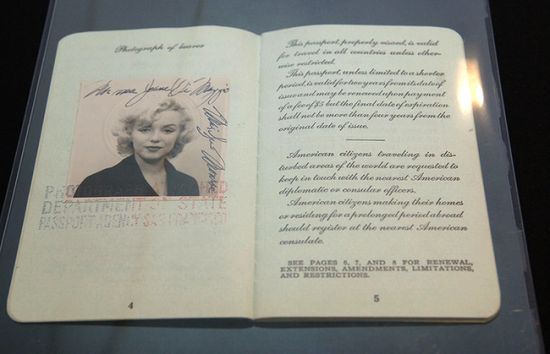 Photograph of bearer
Jeane Di Maggio
DEPARTMENT OF STATE
PASSPORT AGENCY SAN FRANCISCO
4
This passport, properly visaed, is valid
for travel in all countries unless other-
wise restricted.
This passport, unless limited to a shorter
period, is valid for two years from its date of
issue and may be renewed upon payment
of a fee of $5 but the final date of expiration
shall not be more than four years from the
original date of issue.
American citizens traveling in dis-
turbed areas of the world are requested to
keep in touch with the nearest American
diplomatic or consular officers.
American citizens making their homes
or residing for a prolonged period abroad
should register at the nearest American
consulate.
SEE PAGES 6, 7, AND 8 FOR RENEWAL,
EXTENSIONS, AMENDMENTS, LIMITATIONS,
AND RESTRICTIONS.
5